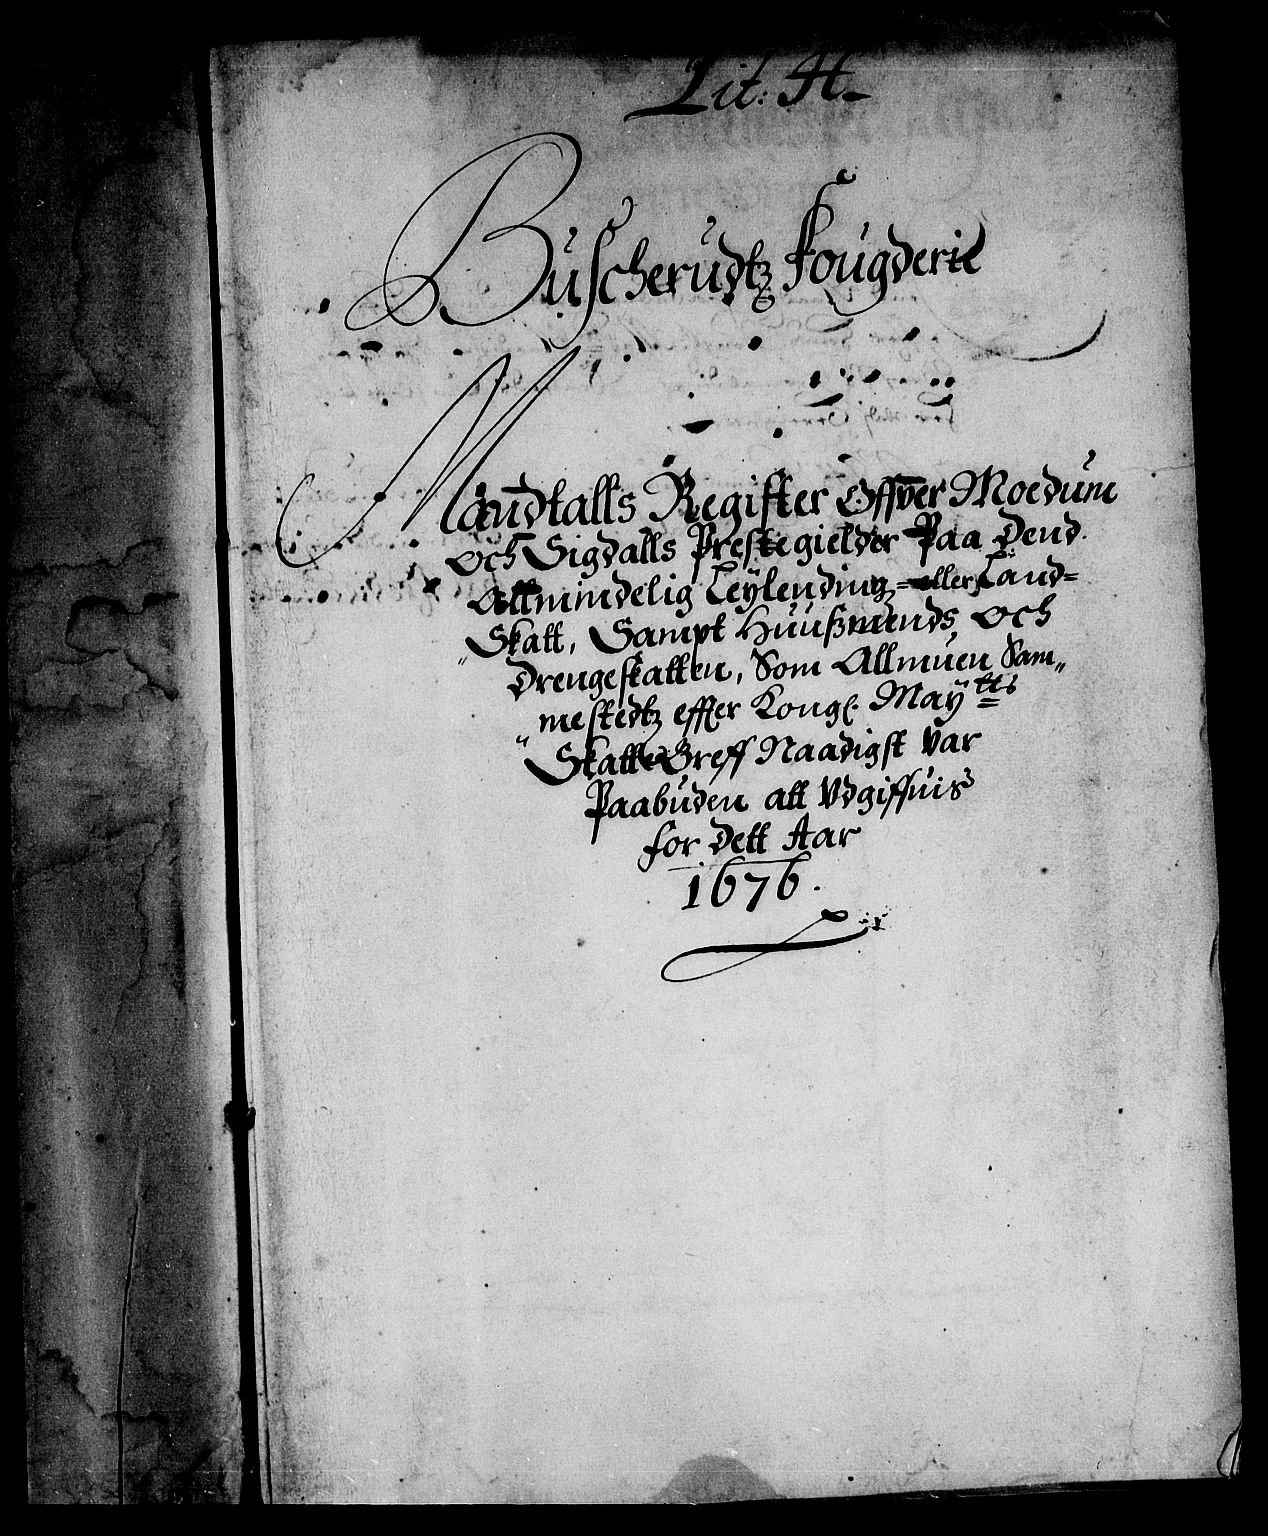 Lit: H.
Buscherudtz Fougderie
Mandtalls Register Offver Moedum
och Sigdalls Prestegielder Paa Dend
Allmindelig Leylendings- eller Land-
Skatt, Sampt Huußmends och
Drengeskatten, Som Allmuen Sam-
mestedtz effter Kongl. Maytts
Skatte Breff Naadigst var
Paabuden att Udgiffuis
for Dett Aar
1676.